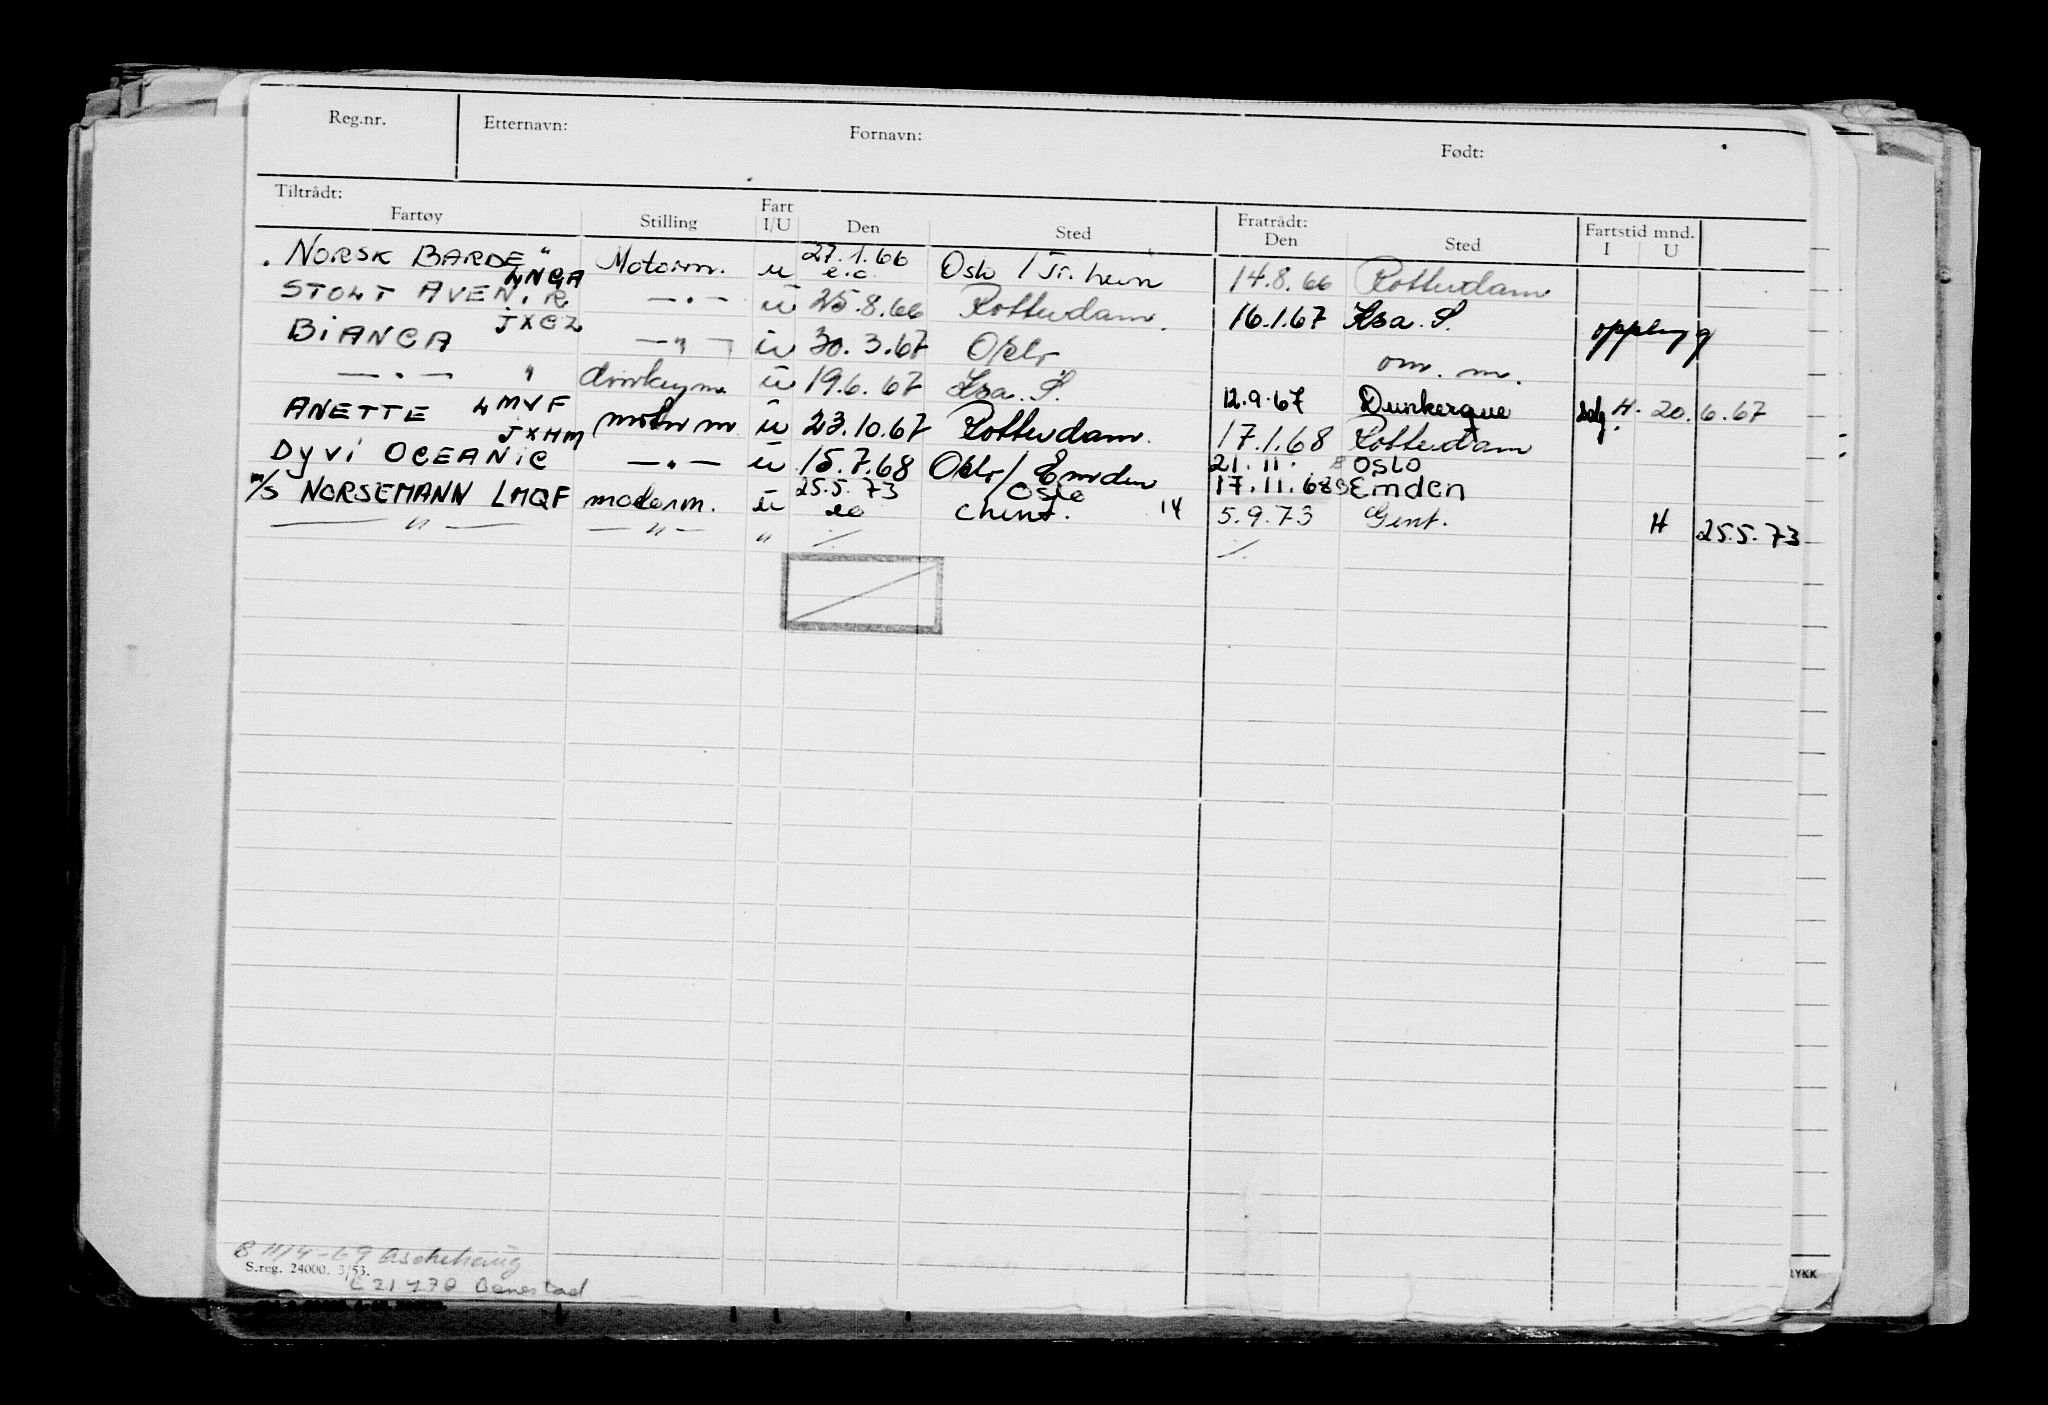 Reg.nr. Etternavn: Fornavn: Født:
Tiltrådt: Fratrådt:
Fartøy Stilling Fart I/U Den Sted Den Sted Fartstid mnd. I U
NORSK BARDE " LNGA Motorm. u 27.1.66 e.o. Oslo / Tr.heim 14.8.66 Rotterdam
STOLT AVENIR — " — u 25.8.66 Rotterdam. 16.1.67 Kra. S. oppbryg
BIANCA JXCZ — " — u 30.3.67 Oslo om. m.
— " — " donkeym. u 19.6.67 Kra. S. 12.9.67 Dunkerque Solg. H. 20.6.67
ANETTE LMVF motorm u 23.10.67 Rotterdam. 17.1.68 Rotterdam
DYVI OCEANIC JXHM — " — u 15.7.68 Oslo / Emden 21.11. Oslo
m/s NORSEMANN LMQF motorm. u 25.5.73 Oslo 17.11.68 Emden
— " — — " — " eo Chent. 14 5.9.73 Gent. H 25.5.73
B 11/4-69 Aschehaug
S.reg. 24000. 3/53.
L 21 470 Benestad
RYKK